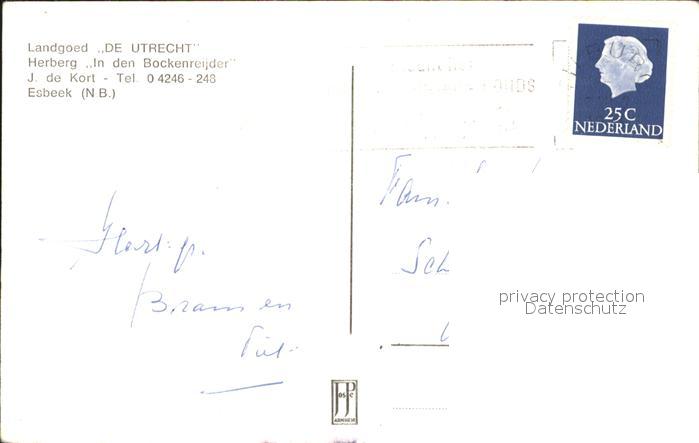 Landgoed „DE UTRECHT"
Herberg „In den Bockenreijder"
J. de Kort - Tel. 0 4246 - 248
Esbeek (N B.)
25 C
NEDERLAND
Fam.
Sch
Hart. gr.
Bram en
privacy protection
Datenschutz
JOSPE
ARNHEM